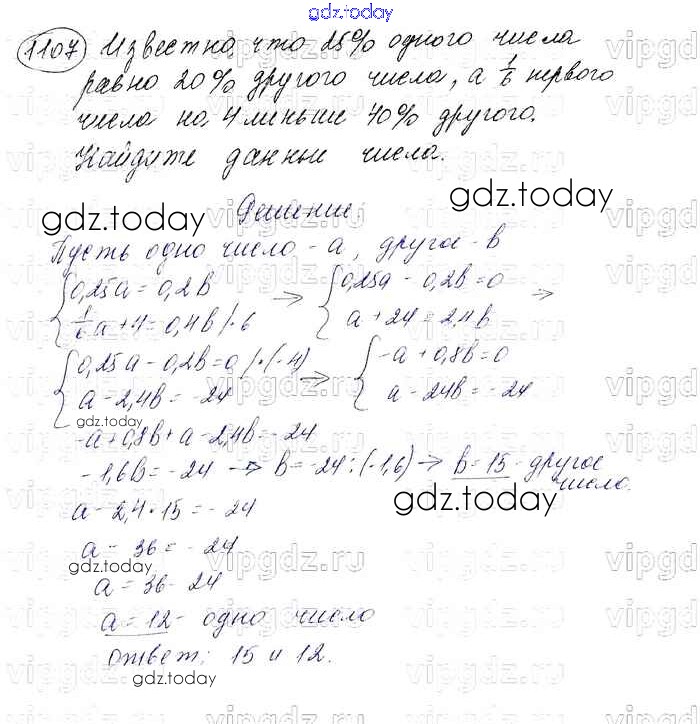 gdz.today
1107 Известно, что 25% одного числа
равно 20% другого числа, а 1/6 первого
числа на 4 меньше 40% другого.
Найдите данные числа.
gdz.today
gdz.today
Решение:
Пусть одно число - a, другое - b
{0,25a = 0,2b → {0,25a - 0,2b = 0 →
{1/6a + 4 = 0,4b |·6 {a + 24 = 2,4b
{0,25a - 0,2b = 0 |·(-4) → {-a + 0,8b = 0
{a - 2,4b = -24 {a - 24b = -24
gdz.today
-a + 0,8b + a - 2,4b = -24
-1,6b = -24 → b = -24 : (-1,6) → b = 15 - другое
число.
gdz.today
a - 2,4 · 15 = -24
a - 36 = -24
gdz.today
a = 36 - 24
a = 12 - одно число
ответ: 15 и 12.
gdz.today